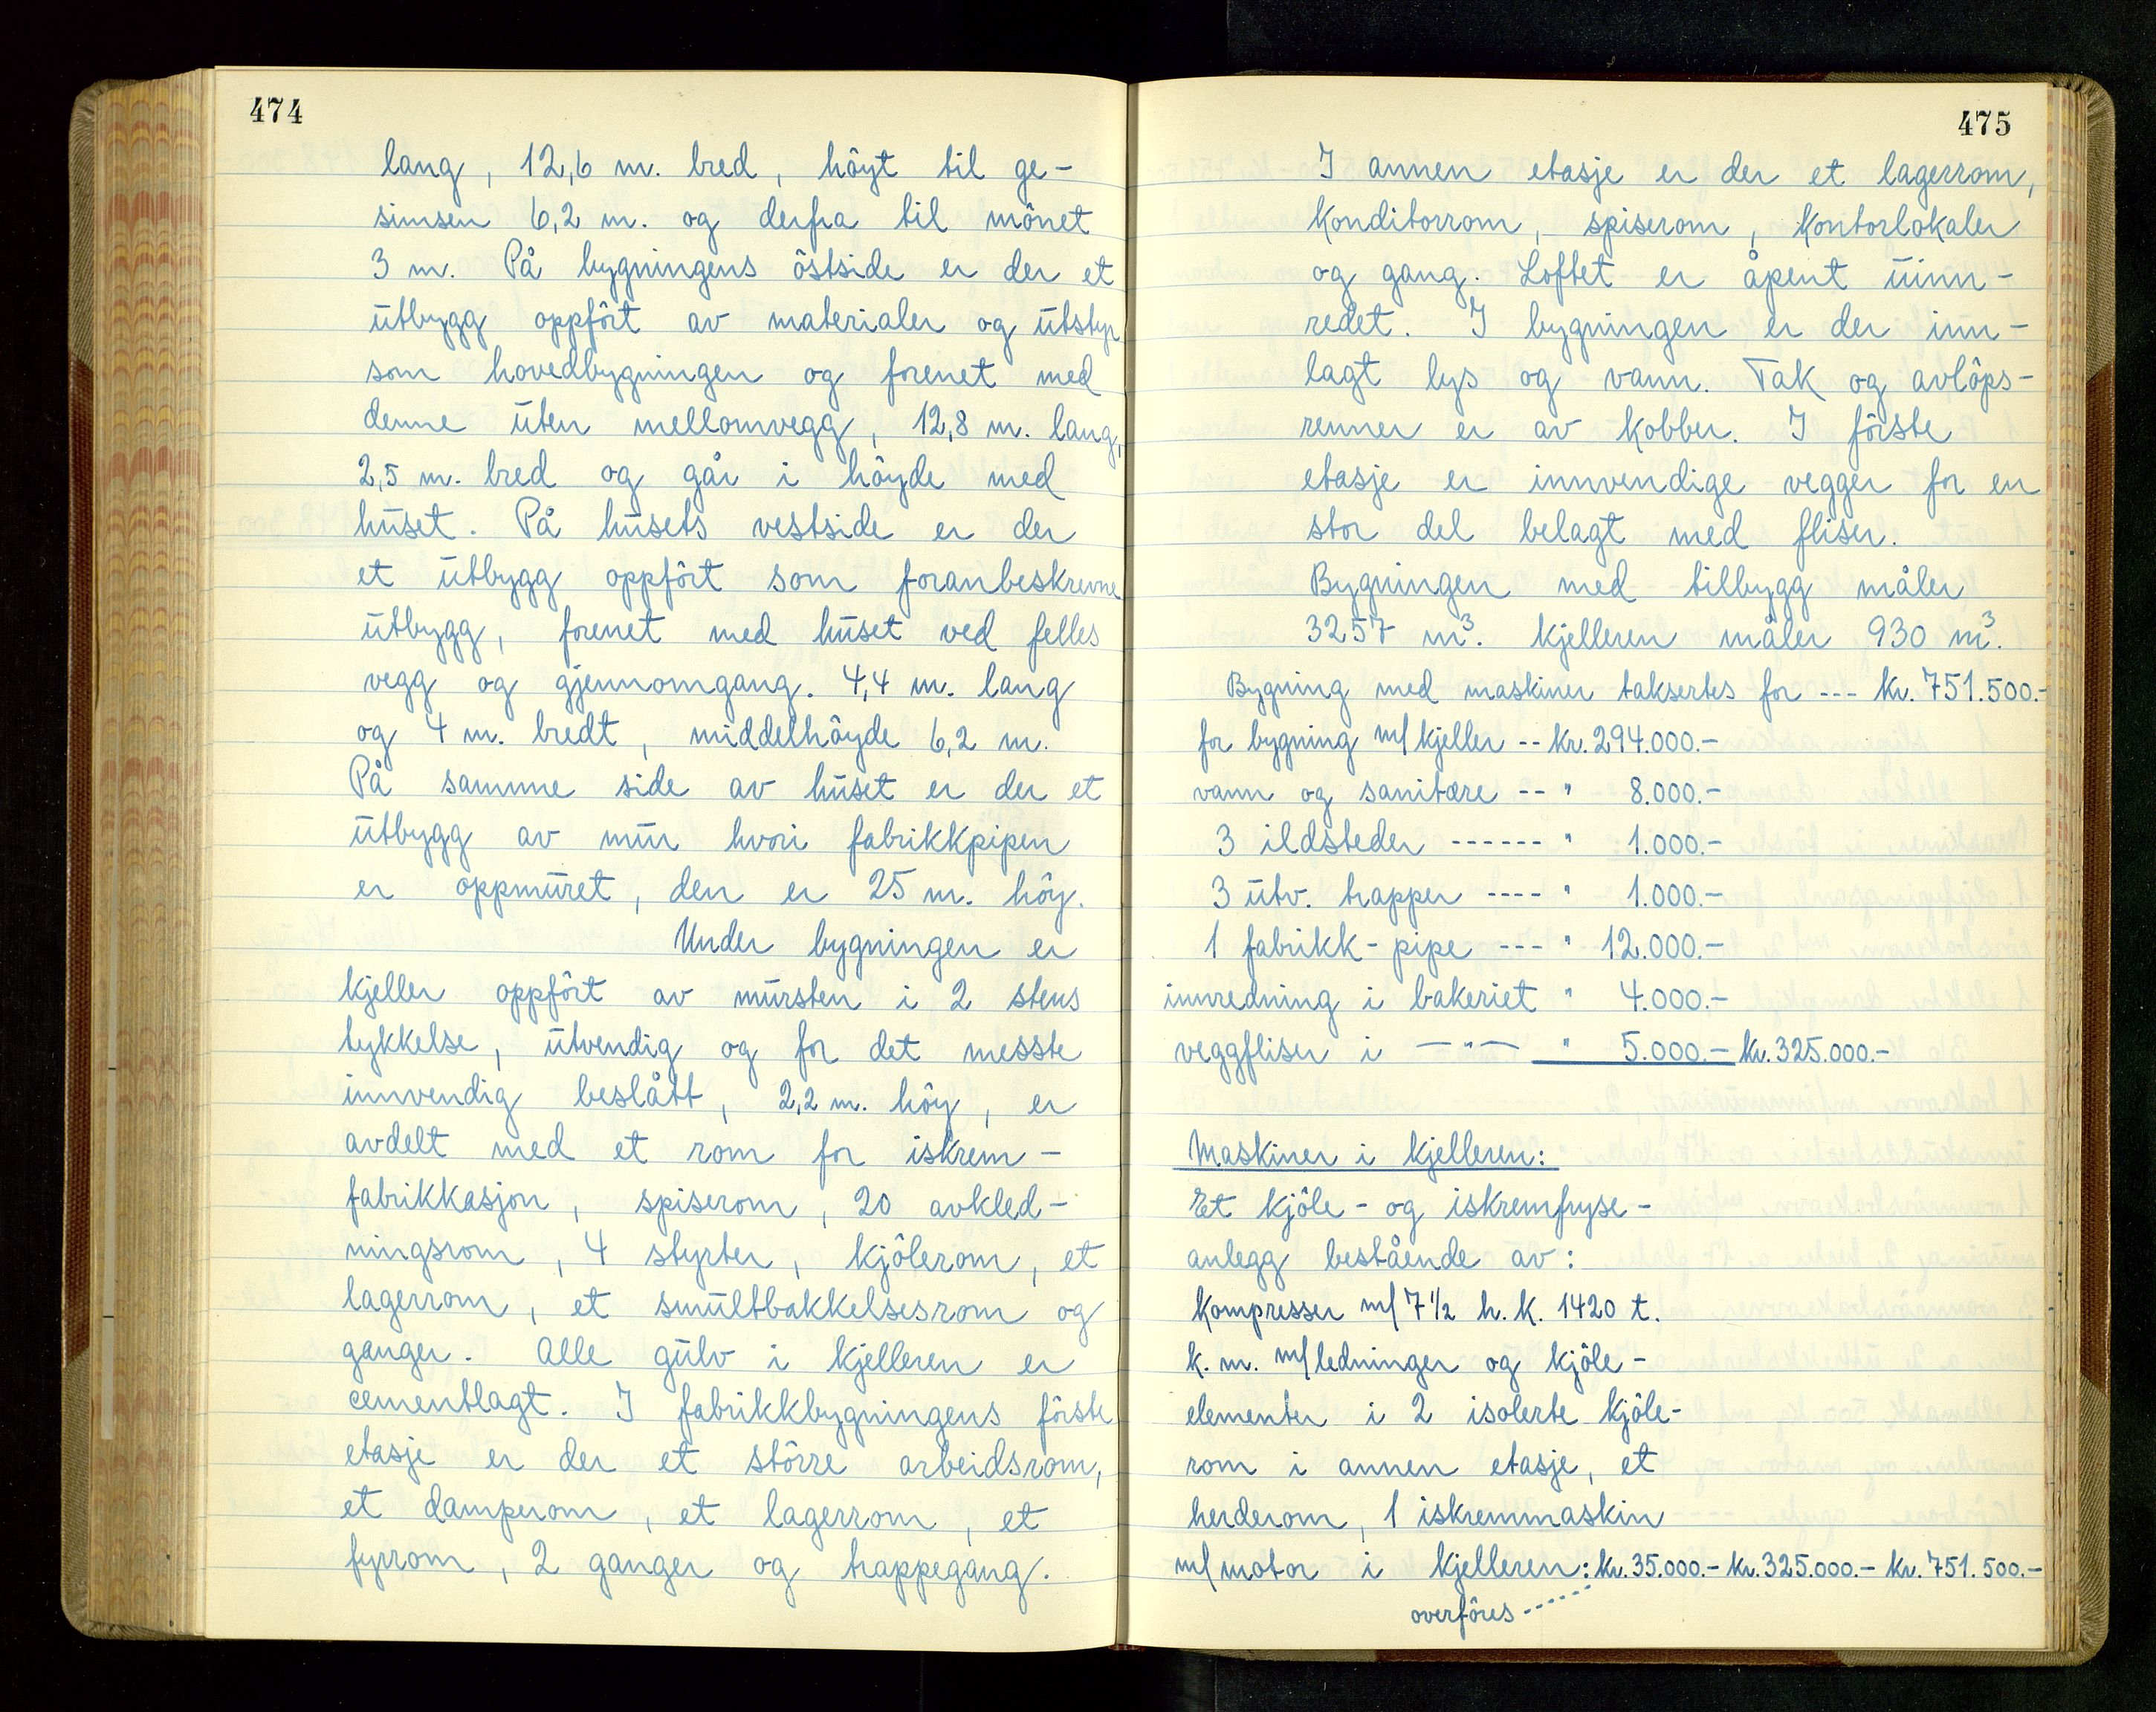 474
lang, 12,6 m. bred, höyt til ge-
simsen 6,2 m. og derfra til mönet
3 m. På bygningens östside er der et
utbygg oppfört av materialer og utstyr
som hovedbygningen og forenet med
denne uten mellomvegg, 12,8 m. lang,
2,5 m. bred og går i höyde med
huset. På husets vestside er der
et utbygg oppfört som foranbeskrevne
utbygg, forenet med huset ved felles
vegg og gjennomgang. 4,4 m. lang
og 4 m. bredt, middelhöyde 6,2 m.
På samme side av huset er der et
utbygg av mur hvori fabrikkpipen
er oppmuret, den er 25 m. höy.
Under bygningen er
kjeller oppfört av mursten i 2 stens
tykkelse, utvendig og for det messte
innvendig beslått, 2,2 m. höy, er
avdelt med et rom for iskrem-
fabrikkasjon, spiserom, 20 avkled-
ningsrom, 4 styrter, kjölerom, et
lagerrom, et smultbakkelsesrom og
ganger. Alle gulv i kjelleren er
cementlagt. I fabrikkbygningens förste
etasje er der et större arbeidsrom,
et damperom, et lagerrom, et
fyrrom, 2 ganger og trappegang.
475
I annen etasje er der et lagerrom,
konditorrom, spiserom, kontorlokaler
og gang. Loftet er åpent uinn-
redet. I bygningen er der inn-
lagt lys og vann. Tak og avlöps-
renner er av kobber. I förste
etasje er innvendige vegger for en
stor del belagt med fliser.
Bygningen med tilbygg måler
3257 m³. kjelleren måler 930 m³.
Bygning med maskiner taksertes for --- kr. 751.500.-
for bygning m/ kjeller -- kr. 294.000.-
vann og sanitære -- " 8.000.-
3 ildsteder ------ " 1.000.-
3 utv. trapper ---- " 1.000.-
1 fabrikk-pipe --- " 12.000.-
innredning i bakeriet " 4.000.-
veggfliser i —"— " 5.000.- kr. 325.000.-
Maskiner i kjelleren:
Et kjöle- og iskremfryse-
anlegg bestående av:
kompresser m/ 7 1/2 h.k. 1420 t.
k. m. m/ ledninger og kjöle-
elementer i 2 isolerte kjöle-
rom i annen etasje, et
herderom, 1 iskremmaskin
m/ motor i kjelleren: kr. 35.000.- kr. 325.000.- kr. 751.500.-
overföres ------